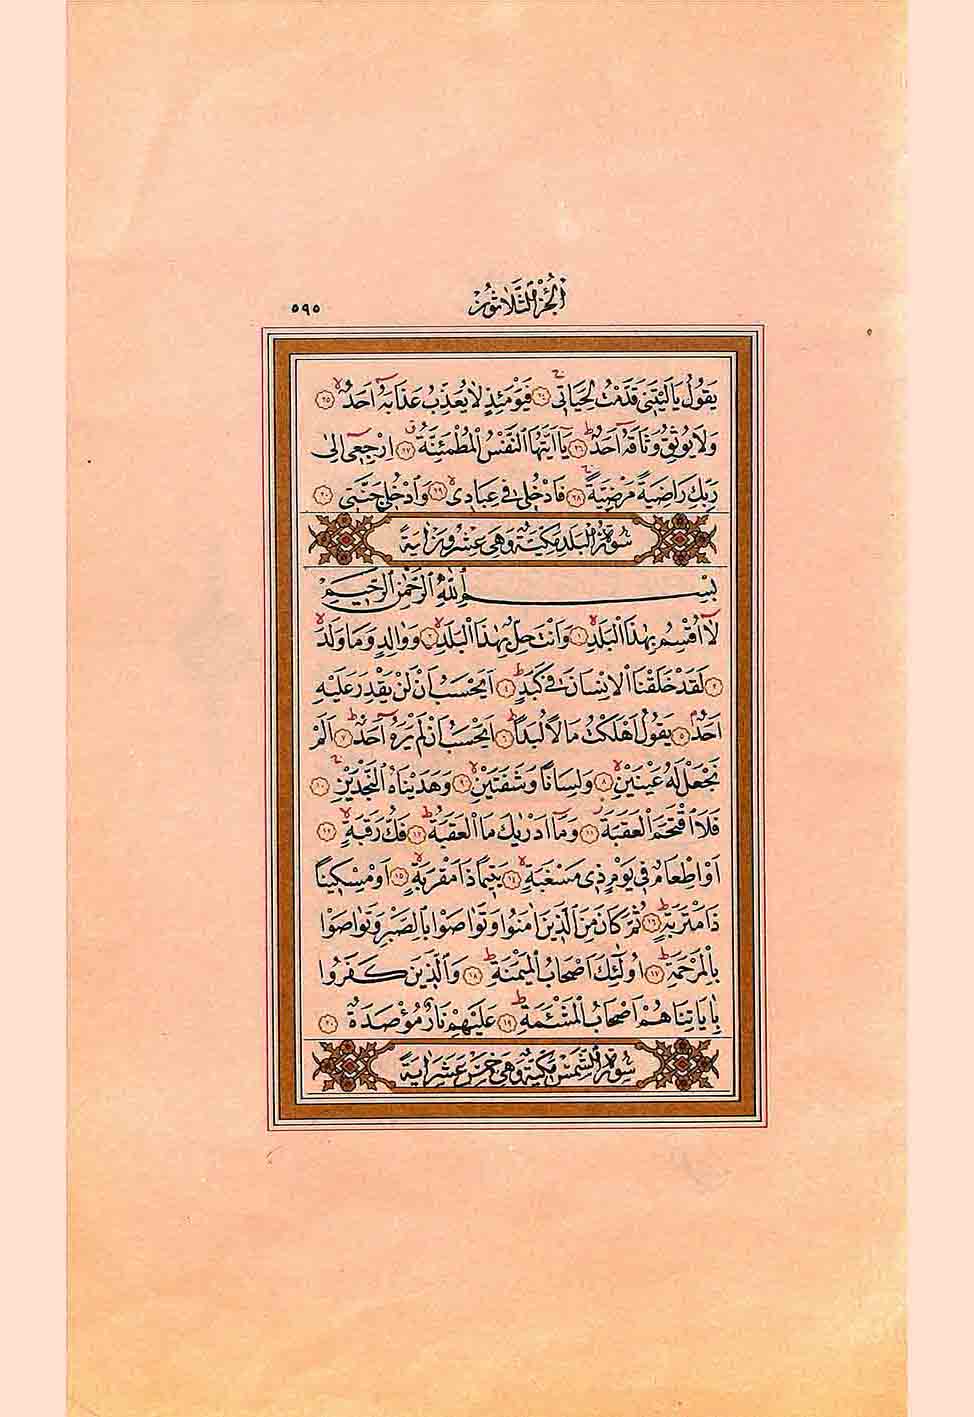 اَلْجُزْءُ الثَّلَاثُونَ
٥٩٥
يَقُولُ يَالَيْتَنٖى قَدَّمْتُ لِحَيَاتٖىۚ ﴿٢٤﴾ فَيَوْمَئِذٍ لَا يُعَذِّبُ عَذَابَهُٓ اَحَدٌۙ ﴿٢٥﴾
وَلَا يُوثِقُ وَثَاقَهُٓ اَحَدٌؕ ﴿٢٦﴾ يَٓا اَيَّتُهَا النَّفْسُ الْمُطْمَئِنَّةُۗ ﴿٢٧﴾ اِرْجِعٖٓى اِلٰى
رَبِّكِ رَاضِيَةً مَرْضِيَّةًۚ ﴿٢٨﴾ فَادْخُلٖى فٖى عِبَادٖىۙ ﴿٢٩﴾ وَادْخُلٖى جَنَّتٖى ﴿٣٠﴾
سُورَةُ الْبَلَدِ مَكِّيَّةٌ وَهِىَ عِشْرُونَ اٰيَةً
بِسْمِ اللّٰهِ الرَّحْمٰنِ الرَّحٖيمِ
لَٓا اُقْسِمُ بِهٰذَا الْبَلَدِۙ ﴿١﴾ وَاَنْتَ حِلٌّ بِهٰذَا الْبَلَدِۙ ﴿٢﴾ وَوَالِدٍ وَمَا وَلَدَۙ
﴿٣﴾ لَقَدْ خَلَقْنَا الْاِنْسَانَ فٖى كَبَدٍؕ ﴿٤﴾ اَيَحْسَبُ اَنْ لَنْ يَقْدِرَ عَلَيْهِ
اَحَدٌۘ ﴿٥﴾ يَقُولُ اَهْلَكْتُ مَالًا لُبَدًاؕ ﴿٦﴾ اَيَحْسَبُ اَنْ لَمْ يَرَهُٓ اَحَدٌؕ ﴿٧﴾ اَلَمْ
نَجْعَلْ لَهُ عَيْنَيْنِۙ ﴿٨﴾ وَلِسَانًا وَشَفَتَيْنِۙ ﴿٩﴾ وَهَدَيْنَاهُ النَّجْدَيْنِۚ ﴿١٠﴾
فَلَا اقْتَحَمَ الْعَقَبَةَؗ ﴿١١﴾ وَمَٓا اَدْرٰيكَ مَا الْعَقَبَةُؕ ﴿١٢﴾ فَكُّ رَقَبَةٍۙ ﴿١٣﴾
اَوْ اِطْعَامٌ فٖى يَوْمٍ ذٖى مَسْغَبَةٍۙ ﴿١٤﴾ يَتٖيمًا ذَا مَقْرَبَةٍۙ ﴿١٥﴾ اَوْ مِسْكٖينًا
ذَا مَتْرَبَةٍؕ ﴿١٦﴾ ثُمَّ كَانَ مِنَ الَّذٖينَ اٰمَنُوا وَتَوَاصَوْا بِالصَّبْرِ وَتَوَاصَوْا
بِالْمَرْحَمَةِؕ ﴿١٧﴾ اُولٰٓئِكَ اَصْحَابُ الْمَيْمَنَةِؕ ﴿١٨﴾ وَالَّذٖينَ كَفَرُوا
بِاٰيَاتِنَا هُمْ اَصْحَابُ الْمَشْـَٔمَةِؕ ﴿١٩﴾ عَلَيْهِمْ نَارٌ مُؤْصَدَةٌ ﴿٢٠﴾
سُورَةُ الشَّمْسِ مَكِّيَّةٌ وَهِىَ خَمْسَ عَشَرَ اٰيَةً